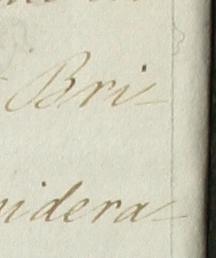 Bri-
nidera-